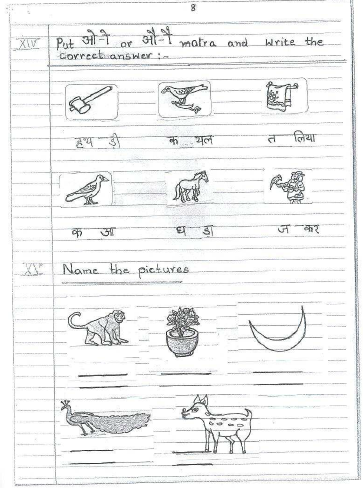 8
XIV Put ओ-ो or औ-ौ matra and Write the
correct answer :-
हथ ड़ी क यल त लिया
क आ घ ड़ा ज कर
XV Name the pictures